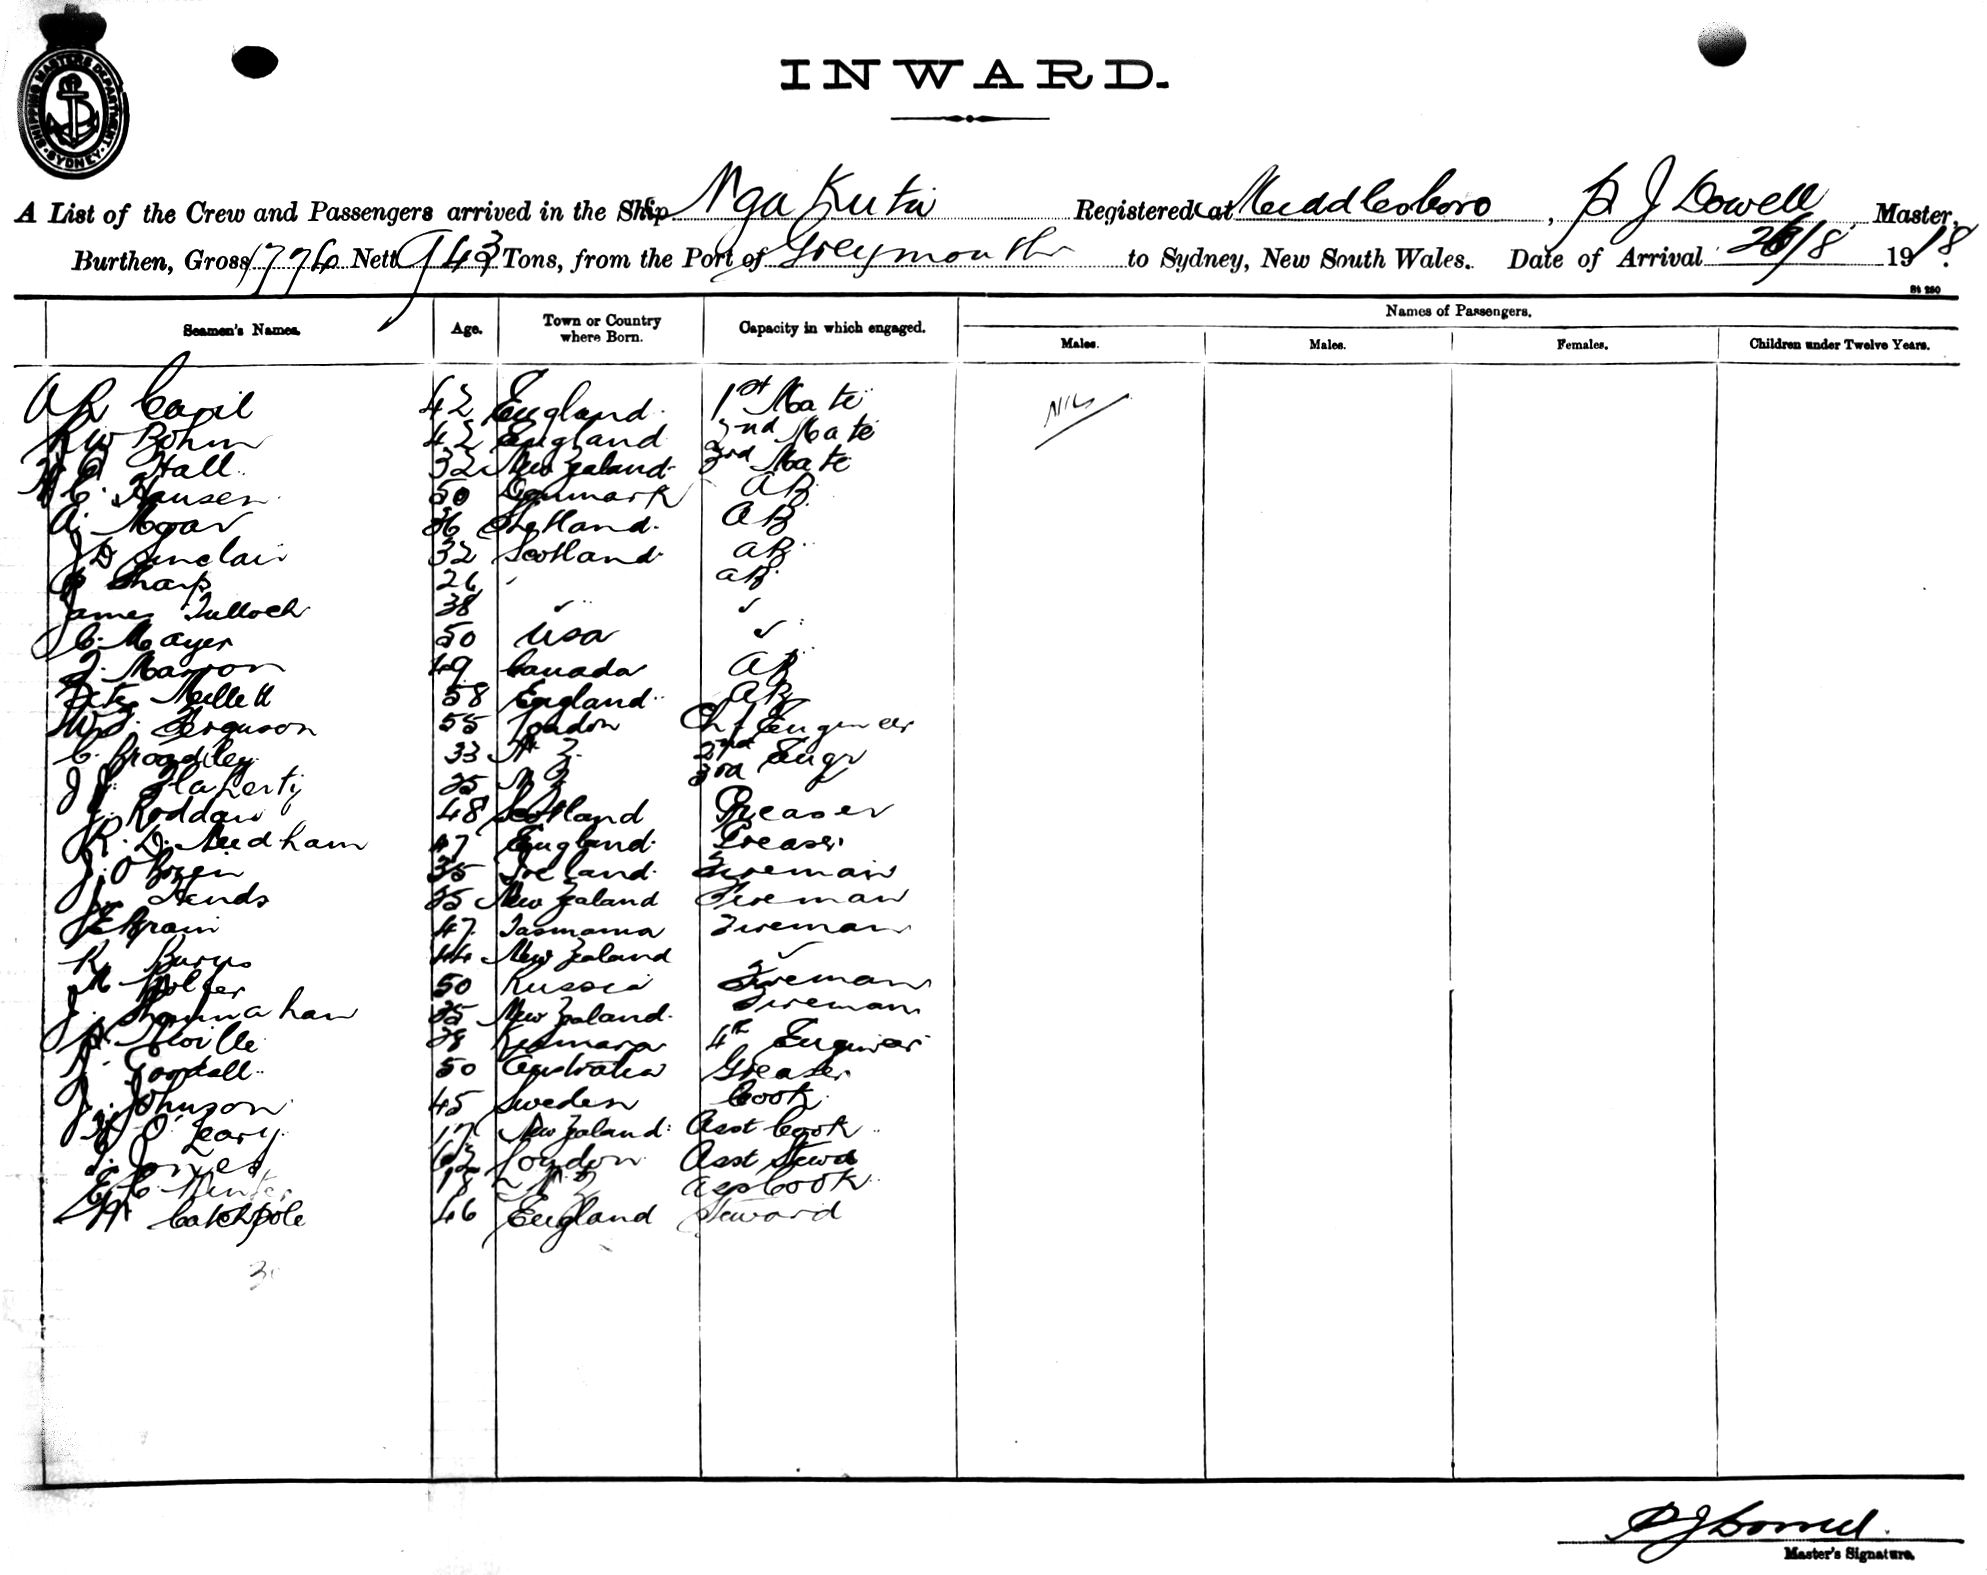 SHIPPING MASTERS DEPARTMENT
SYDNEY
INWARD.
A List of the Crew and Passengers arrived in the Ship Nga Kuta Registered at Middlesboro, P J Dowell Master,
Burthen, Gross 1776 Nett 943 Tons, from the Port of Greymouth to Sydney, New South Wales. Date of Arrival 26/8 1918.
Seamen's Names. Age. Town or Country where Born. Capacity in which engaged. Names of Passengers.
Males. Males. Females. Children under Twelve Years.
A R Capil 42 England 1st Mate Nil
R W Bohm 42 England 2nd Mate
Hall 32 New Zealand 3rd Mate
C. Hansen 50 Denmark AB
A. Moar 36 Shetland AB
J D Sinclair 32 Scotland AB
Sharp 26 AB
James Tulloch 38 ✓ ✓
C. Mayer 50 USA ✓
Marron 49 Canada AB
Mullett 58 England AB
W. Ferguson 55 London Chf Engineer
C. Broadley 33 N Z 2nd Engr
J. Flaherty 35 N Z 3rd
J. Roddan 48 Scotland Greaser
R. D. Needham 47 England Greaser
J. O'Brien 35 Ireland Fireman
J. Hends 35 New Zealand Fireman
47 Tasmania Fireman
R Burns 44 New Zealand ✓
50 Russia Fireman
J. Shannahan 35 New Zealand Fireman
Neville 28 Kumara 4th Engineer
J. Goodall 50 Australia Greaser
J. Johnson 45 Sweden Cook
O'Leary 17 New Zealand Asst Cook
Jones 62 London Asst Stewd
E. C. Hunter 18 N Z Cook
Catchpole 46 England Steward
P J Dowell
Master's Signature.